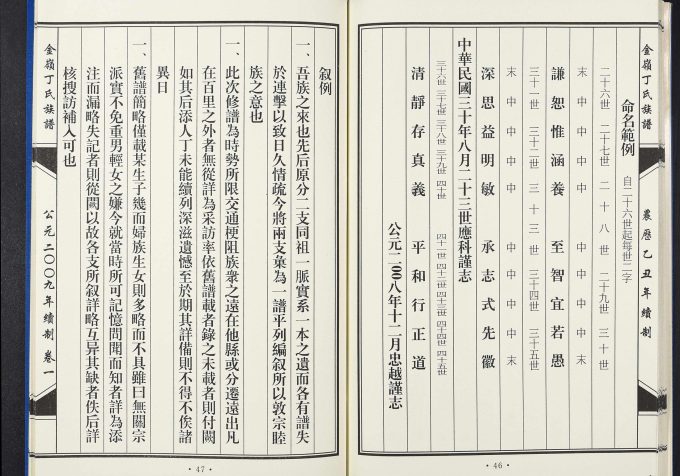 金嶺丁氏族譜 農曆乙丑年續制
命名範例 自二十六世起每世二字
二十六世 二十七世 二十八世 二十九世 三十世
末 中 中 中 中 中 中 中 中 末
謙恕惟涵養 至智宜若愚
三十一世 三十二世 三十三世 三十四世 三十五世
末 中 中 中 中 中 中 中 中 末
深思益明敏 承志式先徽
中華民國三十年八月二十三世應科謹志
三十六世 三十七世 三十八世 三十九世 四十世 四十一世 四十二世 四十三世 四十四世 四十五世
清靜存真義 平和行正道
公元二00八年十二月忠越謹志
·46·
叙例
一、吾族之來也先后原分二支同祖一脈實系一本之遺而各有譜失
於連擊以致日久情疏今將兩支彙為一譜平列編叙所以敦宗睦
族之意也
一、此次修譜為時勢所限交通梗阻族衆之遠在他縣或分遷遠出凡
在百里之外者無從詳為采訪率依舊譜載者錄之未載者則付闕
如其后添人丁未能續列深滋遺憾至於期其詳備則不得不俟諸
異日
一、舊譜簡略僅載某生子幾而婦族生女則多略而不具雖曰無關宗
派實不免重男輕女之嫌今就當時所可記憶問聞而知者詳為添
注而漏略失記者則從闕以故各支所叙詳略互异其缺者佚后詳
核搜訪補入可也
金嶺丁氏族譜 公元二00九年續制 卷一
·47·